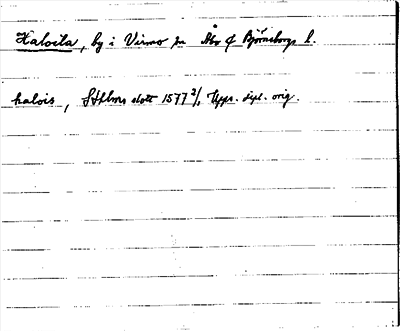 Haloila, by i Virmo sn Åbo & Björneborgs l.
halois, Sthlms slott 1577 3/1 Upps. dipl. orig.